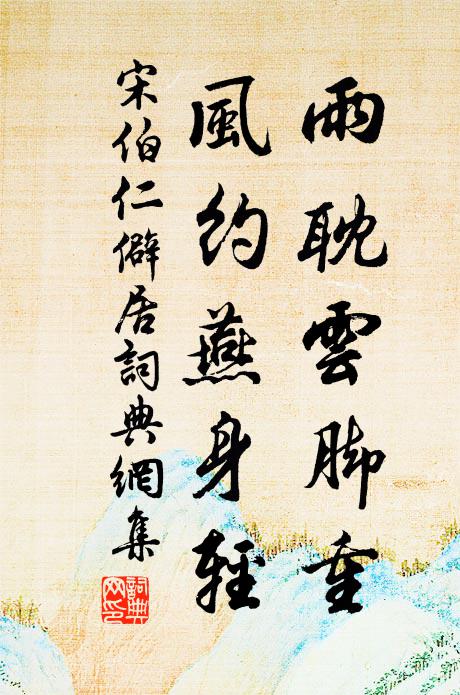 雨耽雲脚重
風約燕身輕
宋伯仁僻居詞典網集
詞典